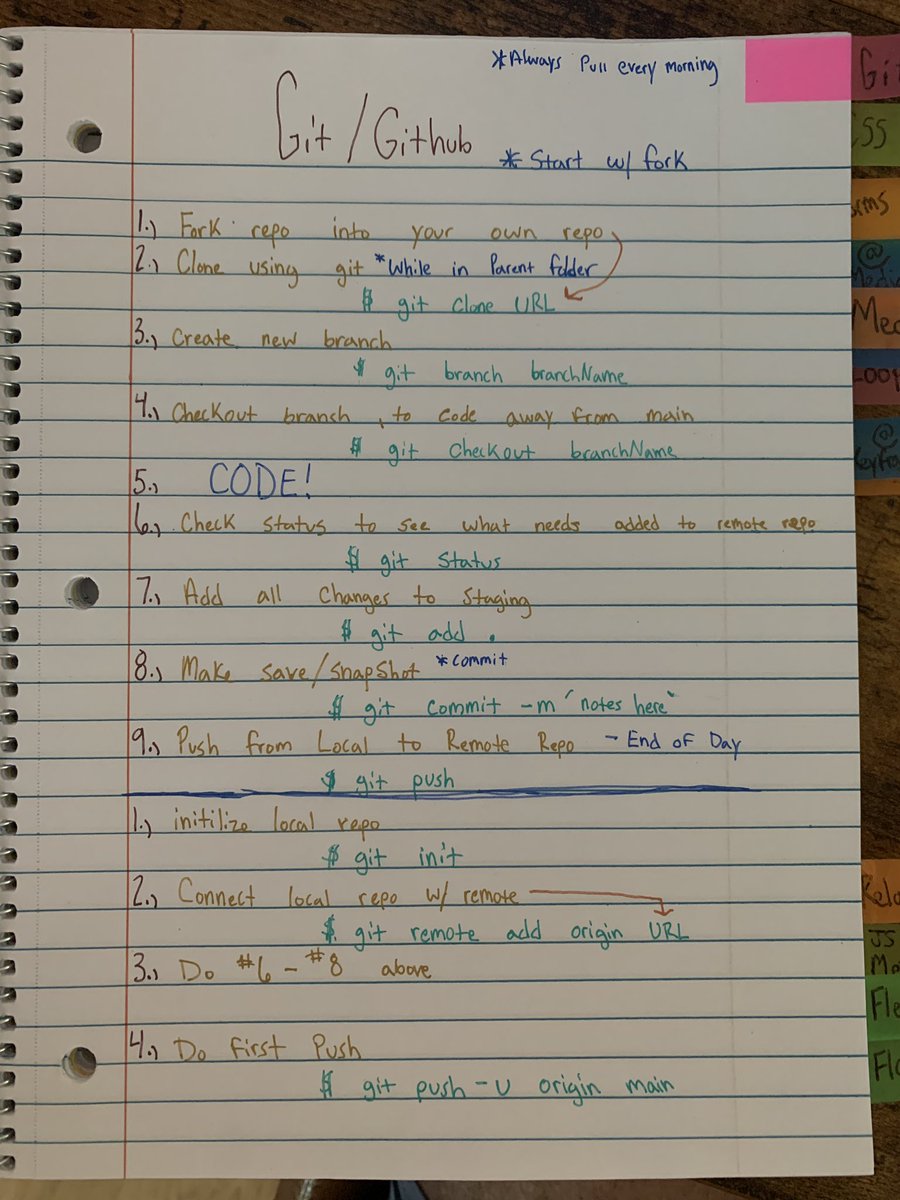 *Always Pull every morning
Git/Github
* Start w/ fork
1., Fork repo into your own repo
2., Clone using git *While in Parent folder
$ git clone URL
3., Create new branch
$ git branch branchName
4., Checkout branch, to code away from main
$ git checkout branchName
5., CODE!
6., Check status to see what needs added to remote repo
$ git status
7., Add all changes to staging
$ git add .
8., Make save/snapshot *commit
$ git commit -m "notes here"
9., Push from Local to Remote Repo - End of Day
$ git push
1., initilize local repo
$ git init
2., Connect local repo w/ remote
$ git remote add origin URL
3., Do #6 - #8 above
4., Do first Push
$ git push -u origin main